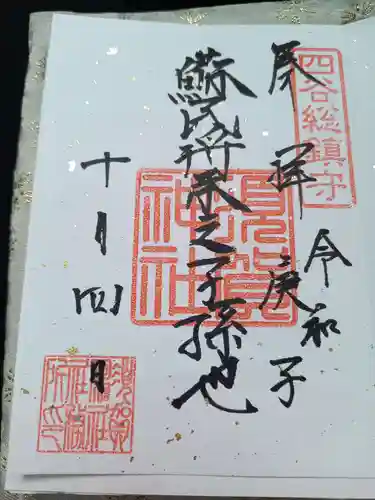 四谷総鎮守
奉拝
令和庚子
蘇民将来之子孫也
須賀神社
十月四日